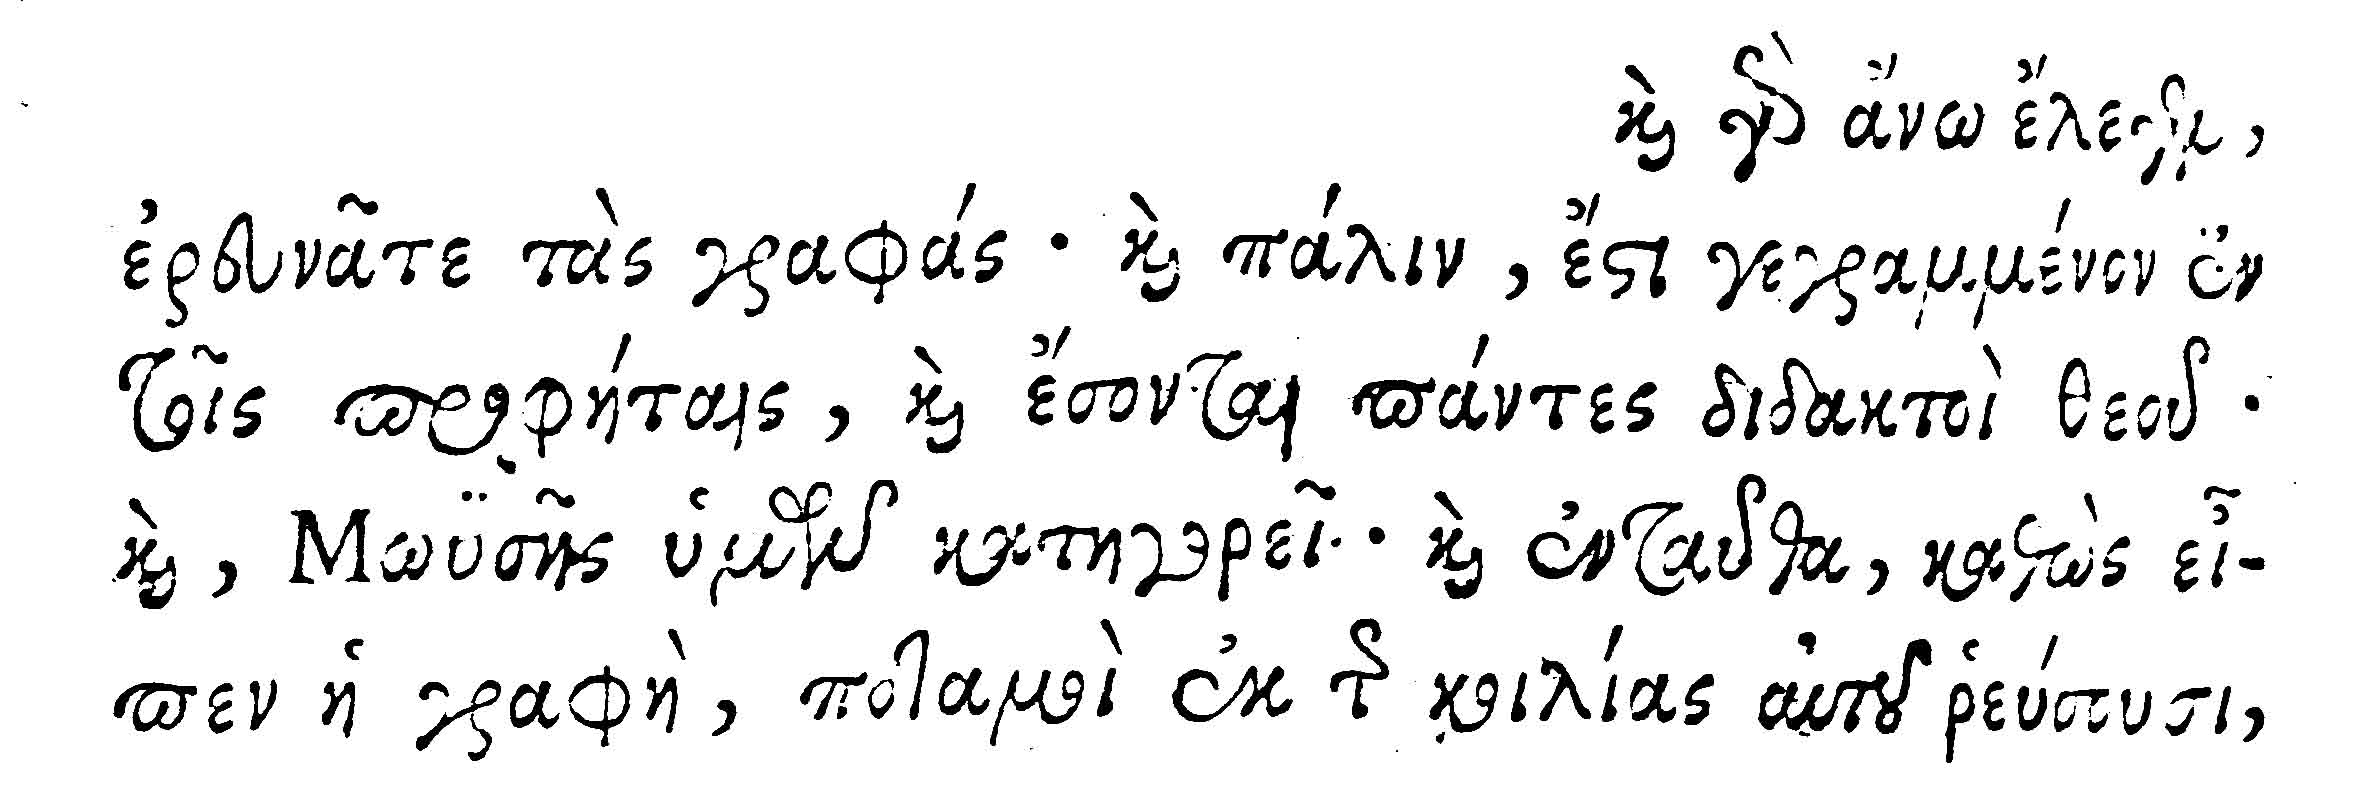 καὶ γὰρ ἄνω ἔλεγεν,
ἐρευνᾶτε τὰς γραφάς· καὶ πάλιν, ἔστι γεγραμμένον ἐν
τοῖς προφήταις, καὶ ἔσονται πάντες διδακτοὶ θεοῦ·
καὶ, Μωϋσῆς ὑμῶν κατηγορεῖ· καὶ ἐνταῦθα, καθὼς εἶ-
πεν ἡ γραφὴ, ποταμοὶ ἐκ τῆς κοιλίας αὐτοῦ ῥεύσουσι,